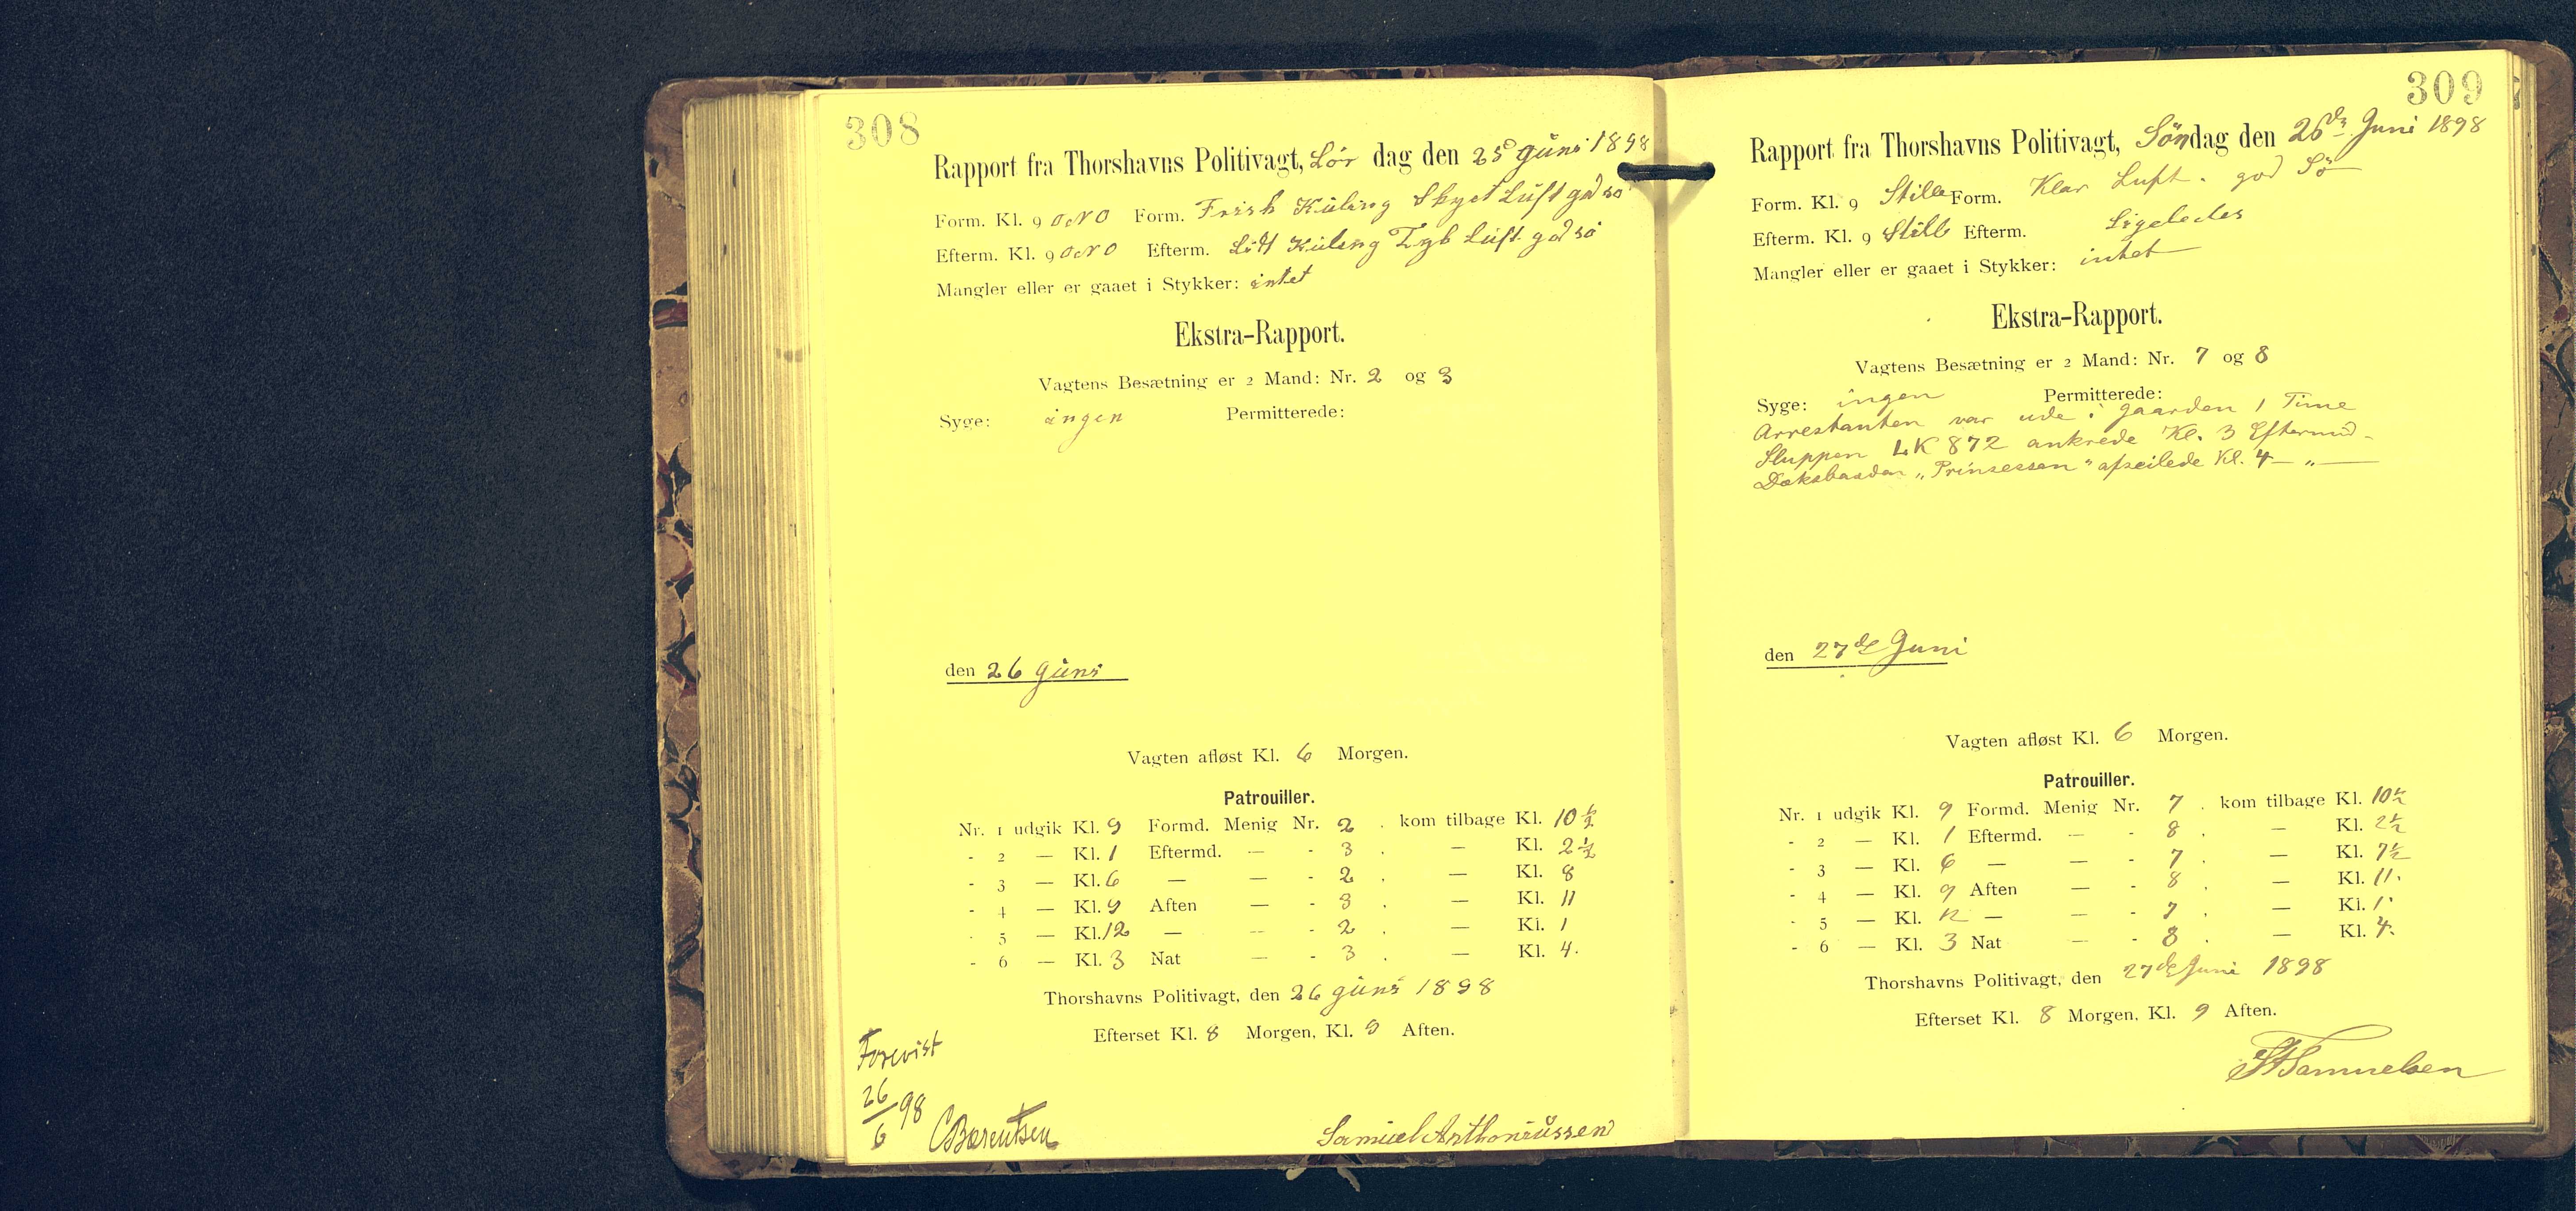 308
Rapport fra Thorshavns Politivagt, Lör dag den 25 Juni 1898
Form. Kl. 9 ONO Form. Frisk Kuling Skyet Luft god sö
Efterm. Kl. 9 ONO Efterm. Lidt Kuling Tyk Luft god sö
Mangler eller er gaaet i Stykker: intet
Ekstra-Rapport.
Vagtens Besætning er 2 Mand: Nr. 2 og 3
Syge: ingen Permitterede:
den 26 Juni
Vagten afløst Kl. 6 Morgen.
Patrouiller.
Nr. 1 udgik Kl. 9 Formd. Menig Nr. 2 . kom tilbage Kl. 10 1/2
- 2 — Kl. 1 Eftermd. — - 3 . — Kl. 2 1/2
- 3 — Kl. 6 — — - 2 . — Kl. 8
- 4 — Kl. 9 Aften — - 3 . — Kl. 11
- 5 — Kl. 12 — — - 2 . — Kl. 1
- 6 — Kl. 3 Nat — - 3 . — Kl. 4.
Thorshavns Politivagt, den 26 Juni 1898
Efterset Kl. 8 Morgen, Kl. 9 Aften.
Forevist
26/6 98 CBærentsen
Samuel Anthoniussen
309
Rapport fra Thorshavns Politivagt, Söndag den 26de Juni 1898
Form. Kl. 9 Stille Form. Klar Luft. god Sö
Efterm. Kl. 9 Stille Efterm. Ligeledes
Mangler eller er gaaet i Stykker: intet
Ekstra-Rapport.
Vagtens Besætning er 2 Mand: Nr. 7 og 8
Syge: ingen Permitterede:
Arrestanten var ude i Gaarden 1 Time
Sluppen LK 872 ankrede Kl. 3 Eftermid-
Dæksbaaden „Prinsessen" afseilede Kl. 4 — „ —
den 27de Juni
Vagten afløst Kl. 6 Morgen.
Patrouiller.
Nr. 1 udgik Kl. 9 Formd. Menig Nr. 7 . kom tilbage Kl. 10 1/2
- 2 — Kl. 1 Eftermd. — - 8 . — Kl. 2 1/2
- 3 — Kl. 6 — — - 7 . — Kl. 7 1/2
- 4 — Kl. 9 Aften — - 8 . — Kl. 11.
- 5 — Kl. 12 — — - 7 . — Kl. 1.
- 6 — Kl. 3 Nat — - 8 . — Kl. 4.
Thorshavns Politivagt, den 27de Juni 1898
Efterset Kl. 8 Morgen, Kl. 9 Aften.
Samuelsen